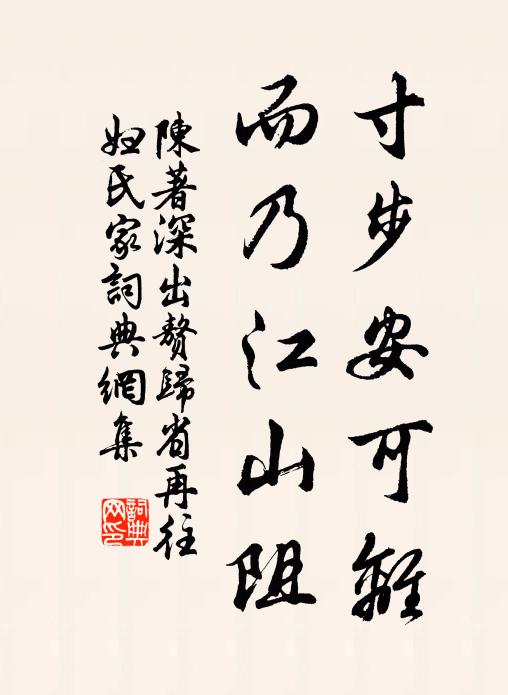 寸步安可離
而乃江山阻
陳著深出贅歸省再往
妲氏家詞典網集
詞典网印